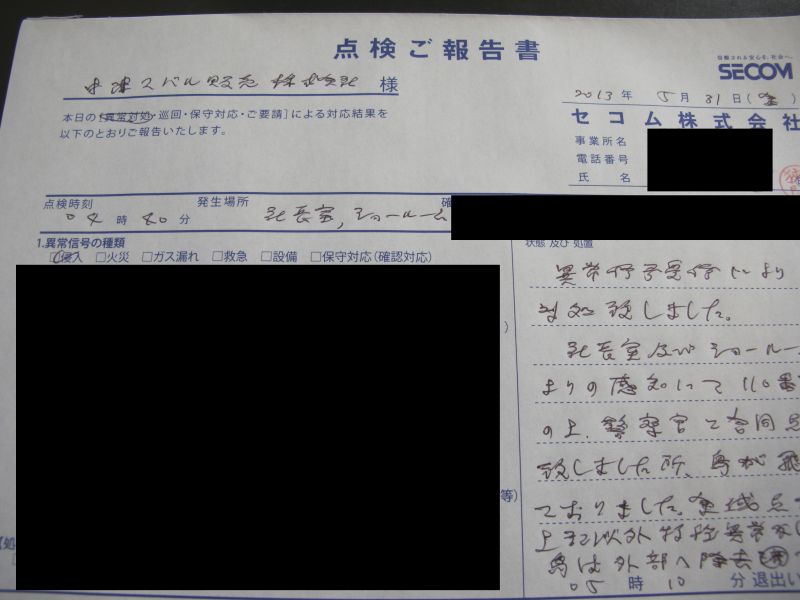 点検ご報告書
信頼される安心を、社会へ。
SECOM
中津スバル販売株式会社 様
2013年 5月31日(金)
本日の[異常対処・巡回・保守対応・ご要請]による対応結果を
以下のとおりご報告いたします。
セコム株式会社
事業所名
電話番号
氏 名
点検時刻
04時40分
発生場所 社長室,ショールーム
確
1.異常信号の種類
□侵入 □火災 □ガス漏れ □救急 □設備 □保守対応(確認対応)
)
等)
状態 及び 処置
異常信号受信により
対処致しました。
社長室及びショールー
よりの感知にて110番
の上、警察官と合同点
致しました所、鳥が飛
ておりました。全域点
上記以外特段異常な
鳥は外部へ除去済
05時10分 退出い